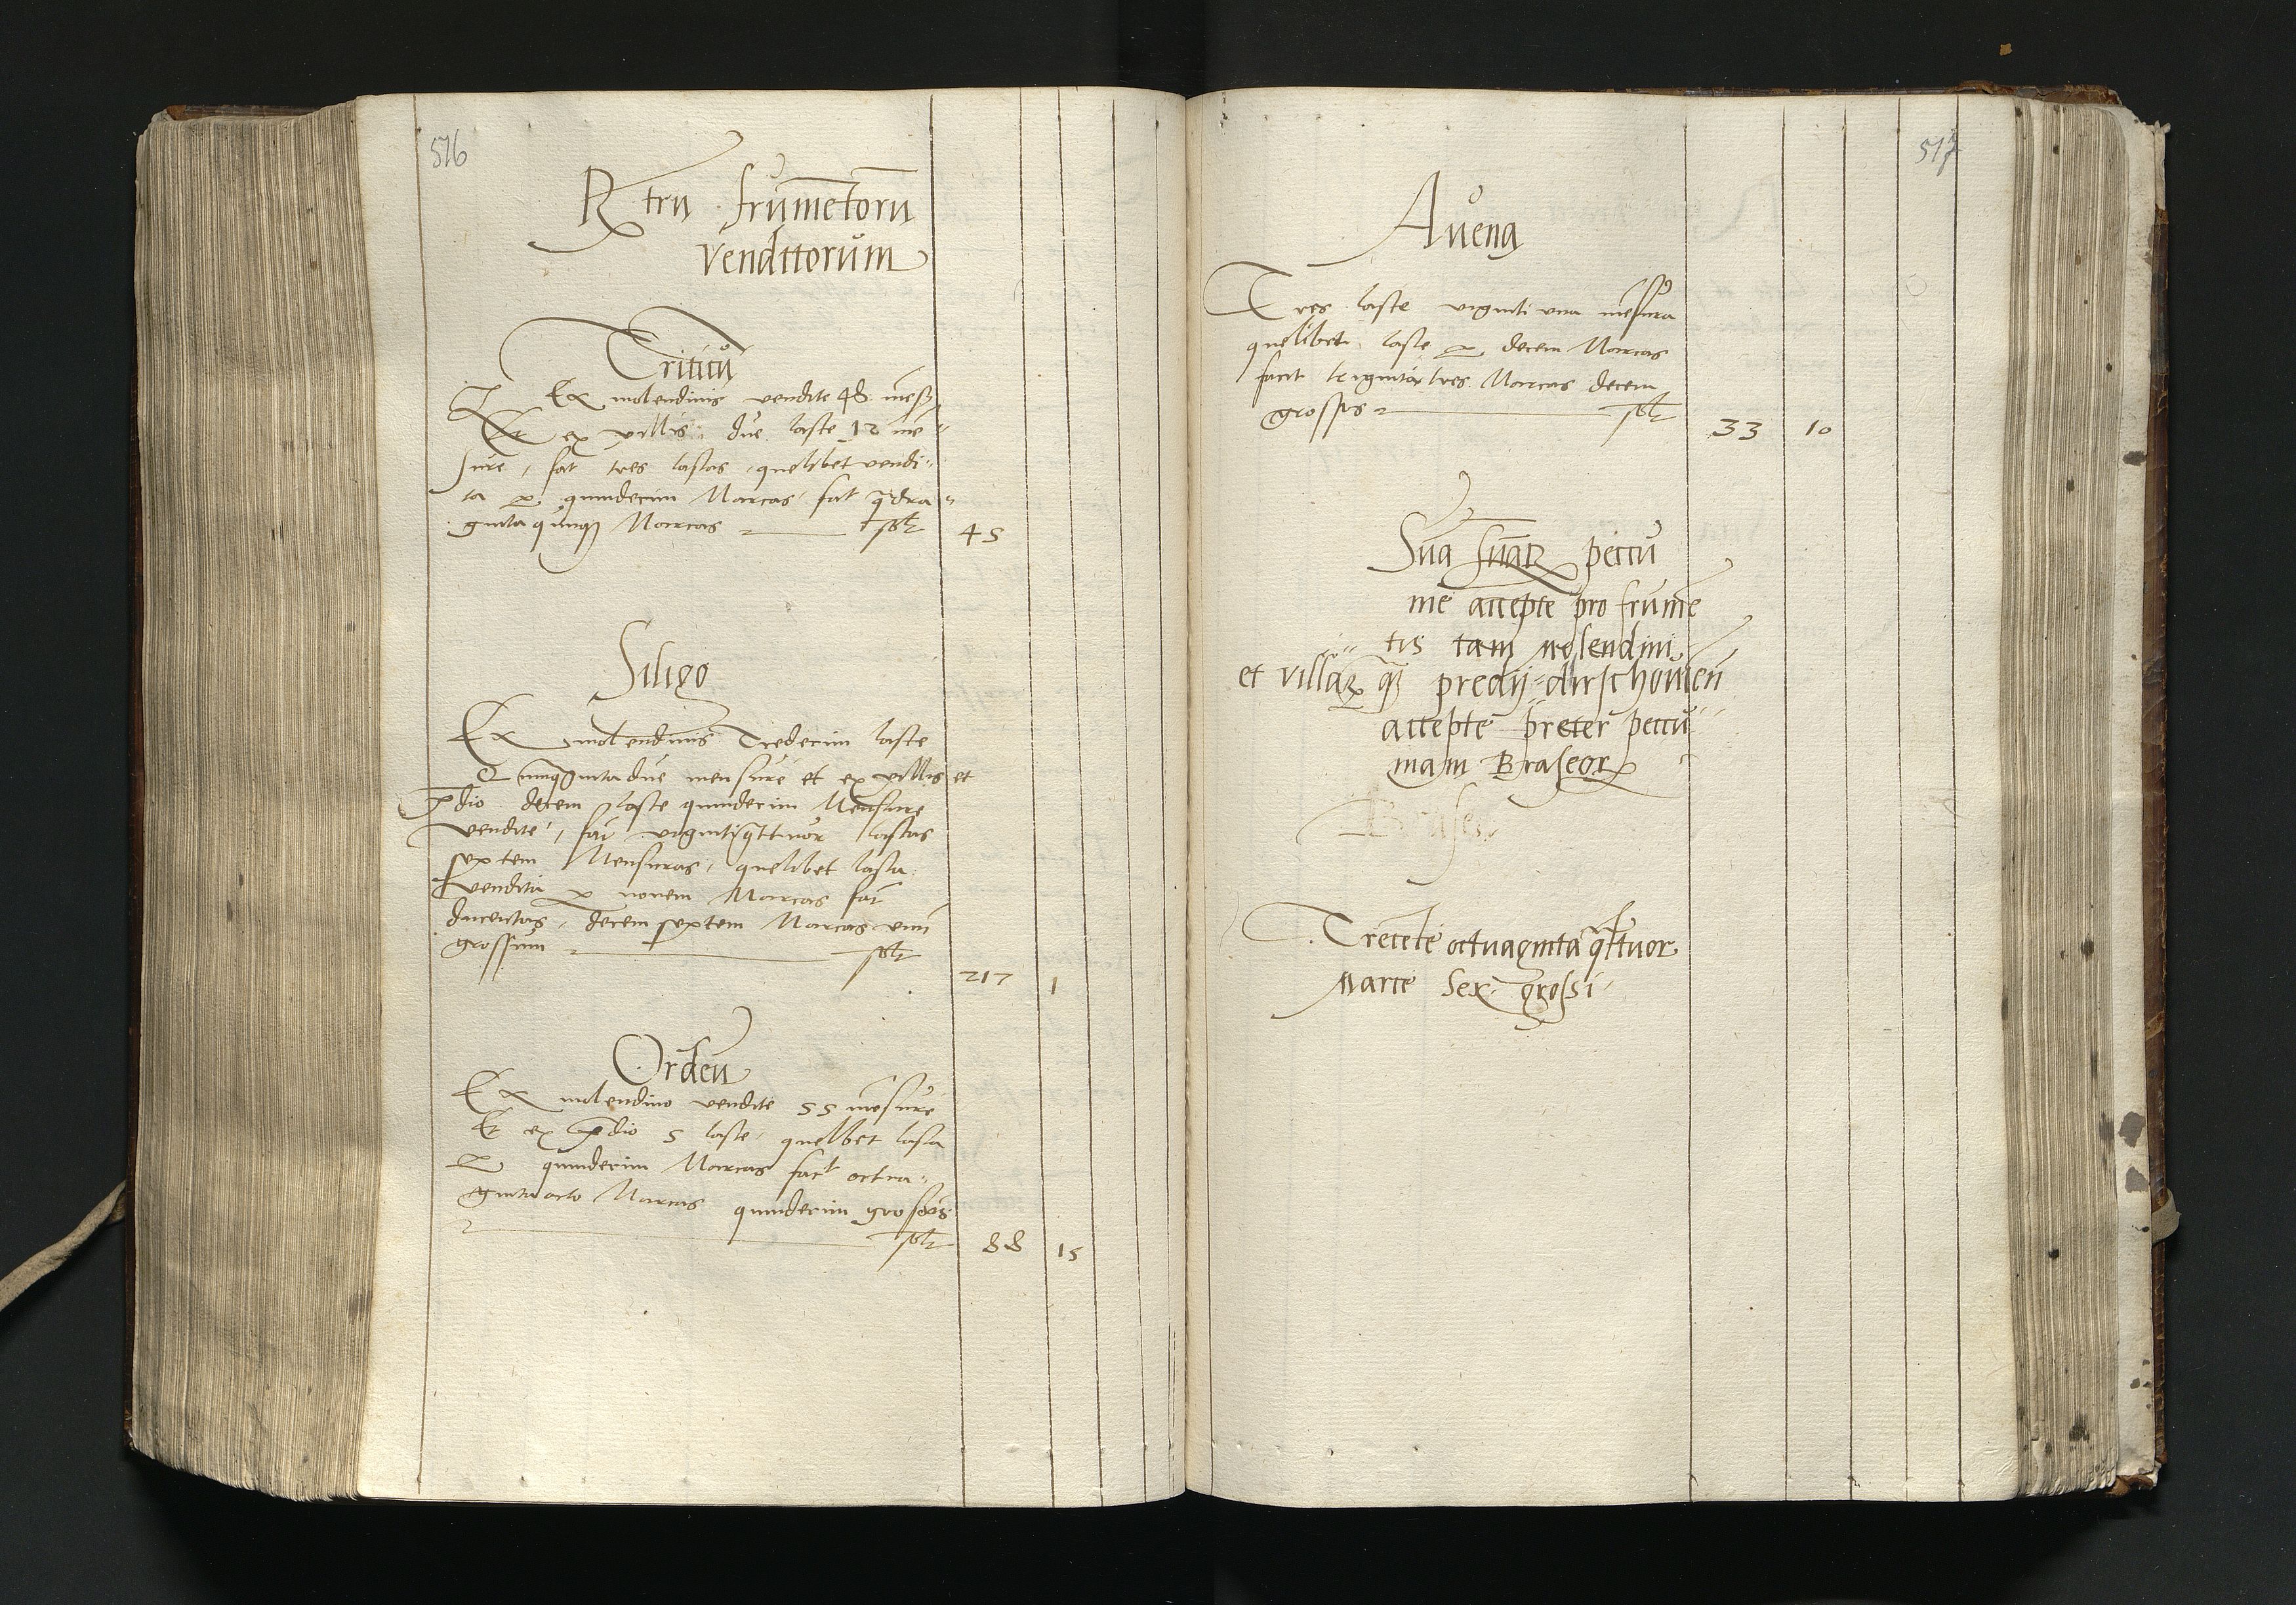 516
Rtrū frūmētorū
vendittorum
Triticū
Ex molendinis vendite 48 mēs
Et ex villis due laste 12 mē=
sure, fāt tres lastas, quelibet vendi=
ta ꝑ quindecim Marcas fāt qᵃdra=
gintaquinqꝫ Marcas
45
Siligo
Ex molendinis Tredecim laste
Qūinqᵃgintadue mensure et ex villis et
p̄dio decem laste quindecim Mensure
vendite, fāt vigintiqᵃttuor lastas
septem Mensuras, quelibet lasta
vendita ꝑ novem Marcas fāt
ducentas decem septem Marcas vnū
grossum
217 1
Ordeū
Ex molendino vendite 55 mēsure
Et ex p̄dio 5 laste, quelibet lasta
ꝑ quindecim Marcas facit octua=
gintaocto Marcas quindecim grossos
88 15
517
Avena
Tres laste viginti vna mēsura
quelibet laste ꝑ decem Marcas
facit triginta tres Marcas decem
grossos
33 10
Sūa sūaꝝ peccū
nie accepte pro frumē
tis tam Molendini
et villaꝝ qᵃ predij dirschouien̄
accepte preter peccū=
niam Braseoꝝ
Brase
Trecēte octuaginta qᵃttuor
Marce Sex grossi